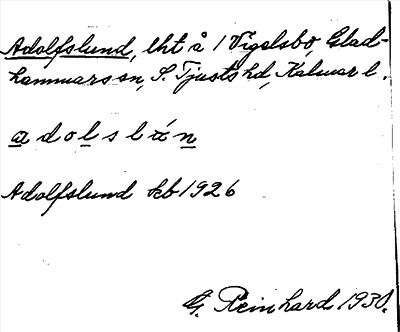 Adolfslund, lht å 1 Vigelsbo, Glad-
hammars sn, S. Tjusts hd, Kalmar l.
a d o l s l n
Adolfslund kb 1926
G. Reinhard 1930.